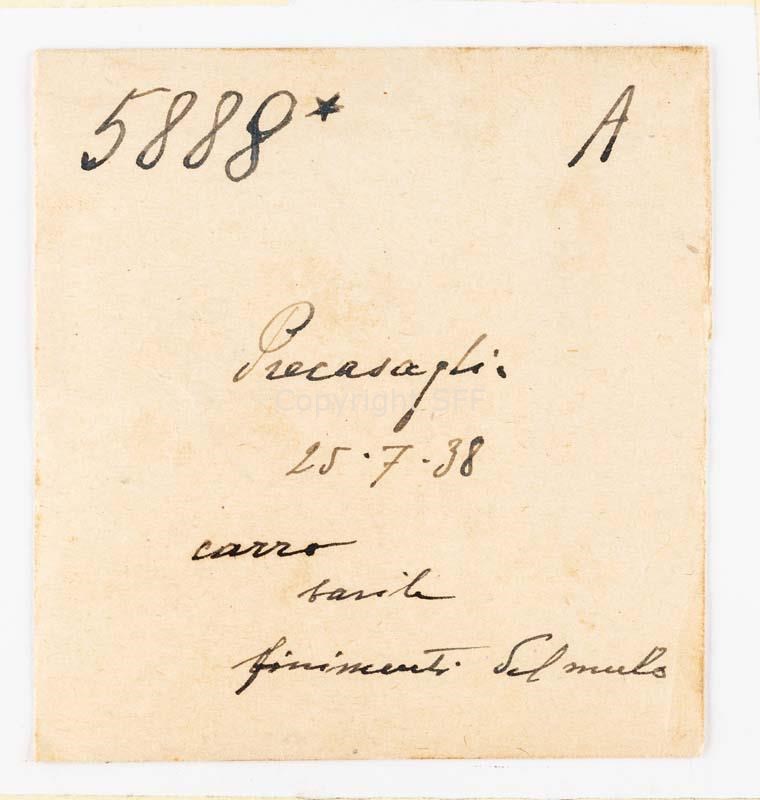 5888* A
Precasaglio
Copyright SFF
25·7·38
carro
barile
finimenti del mulo